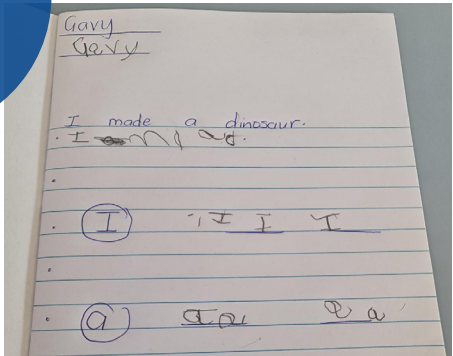 Gavy
Gavy
I made a dinosaur.
I
I I I I
a a a a a